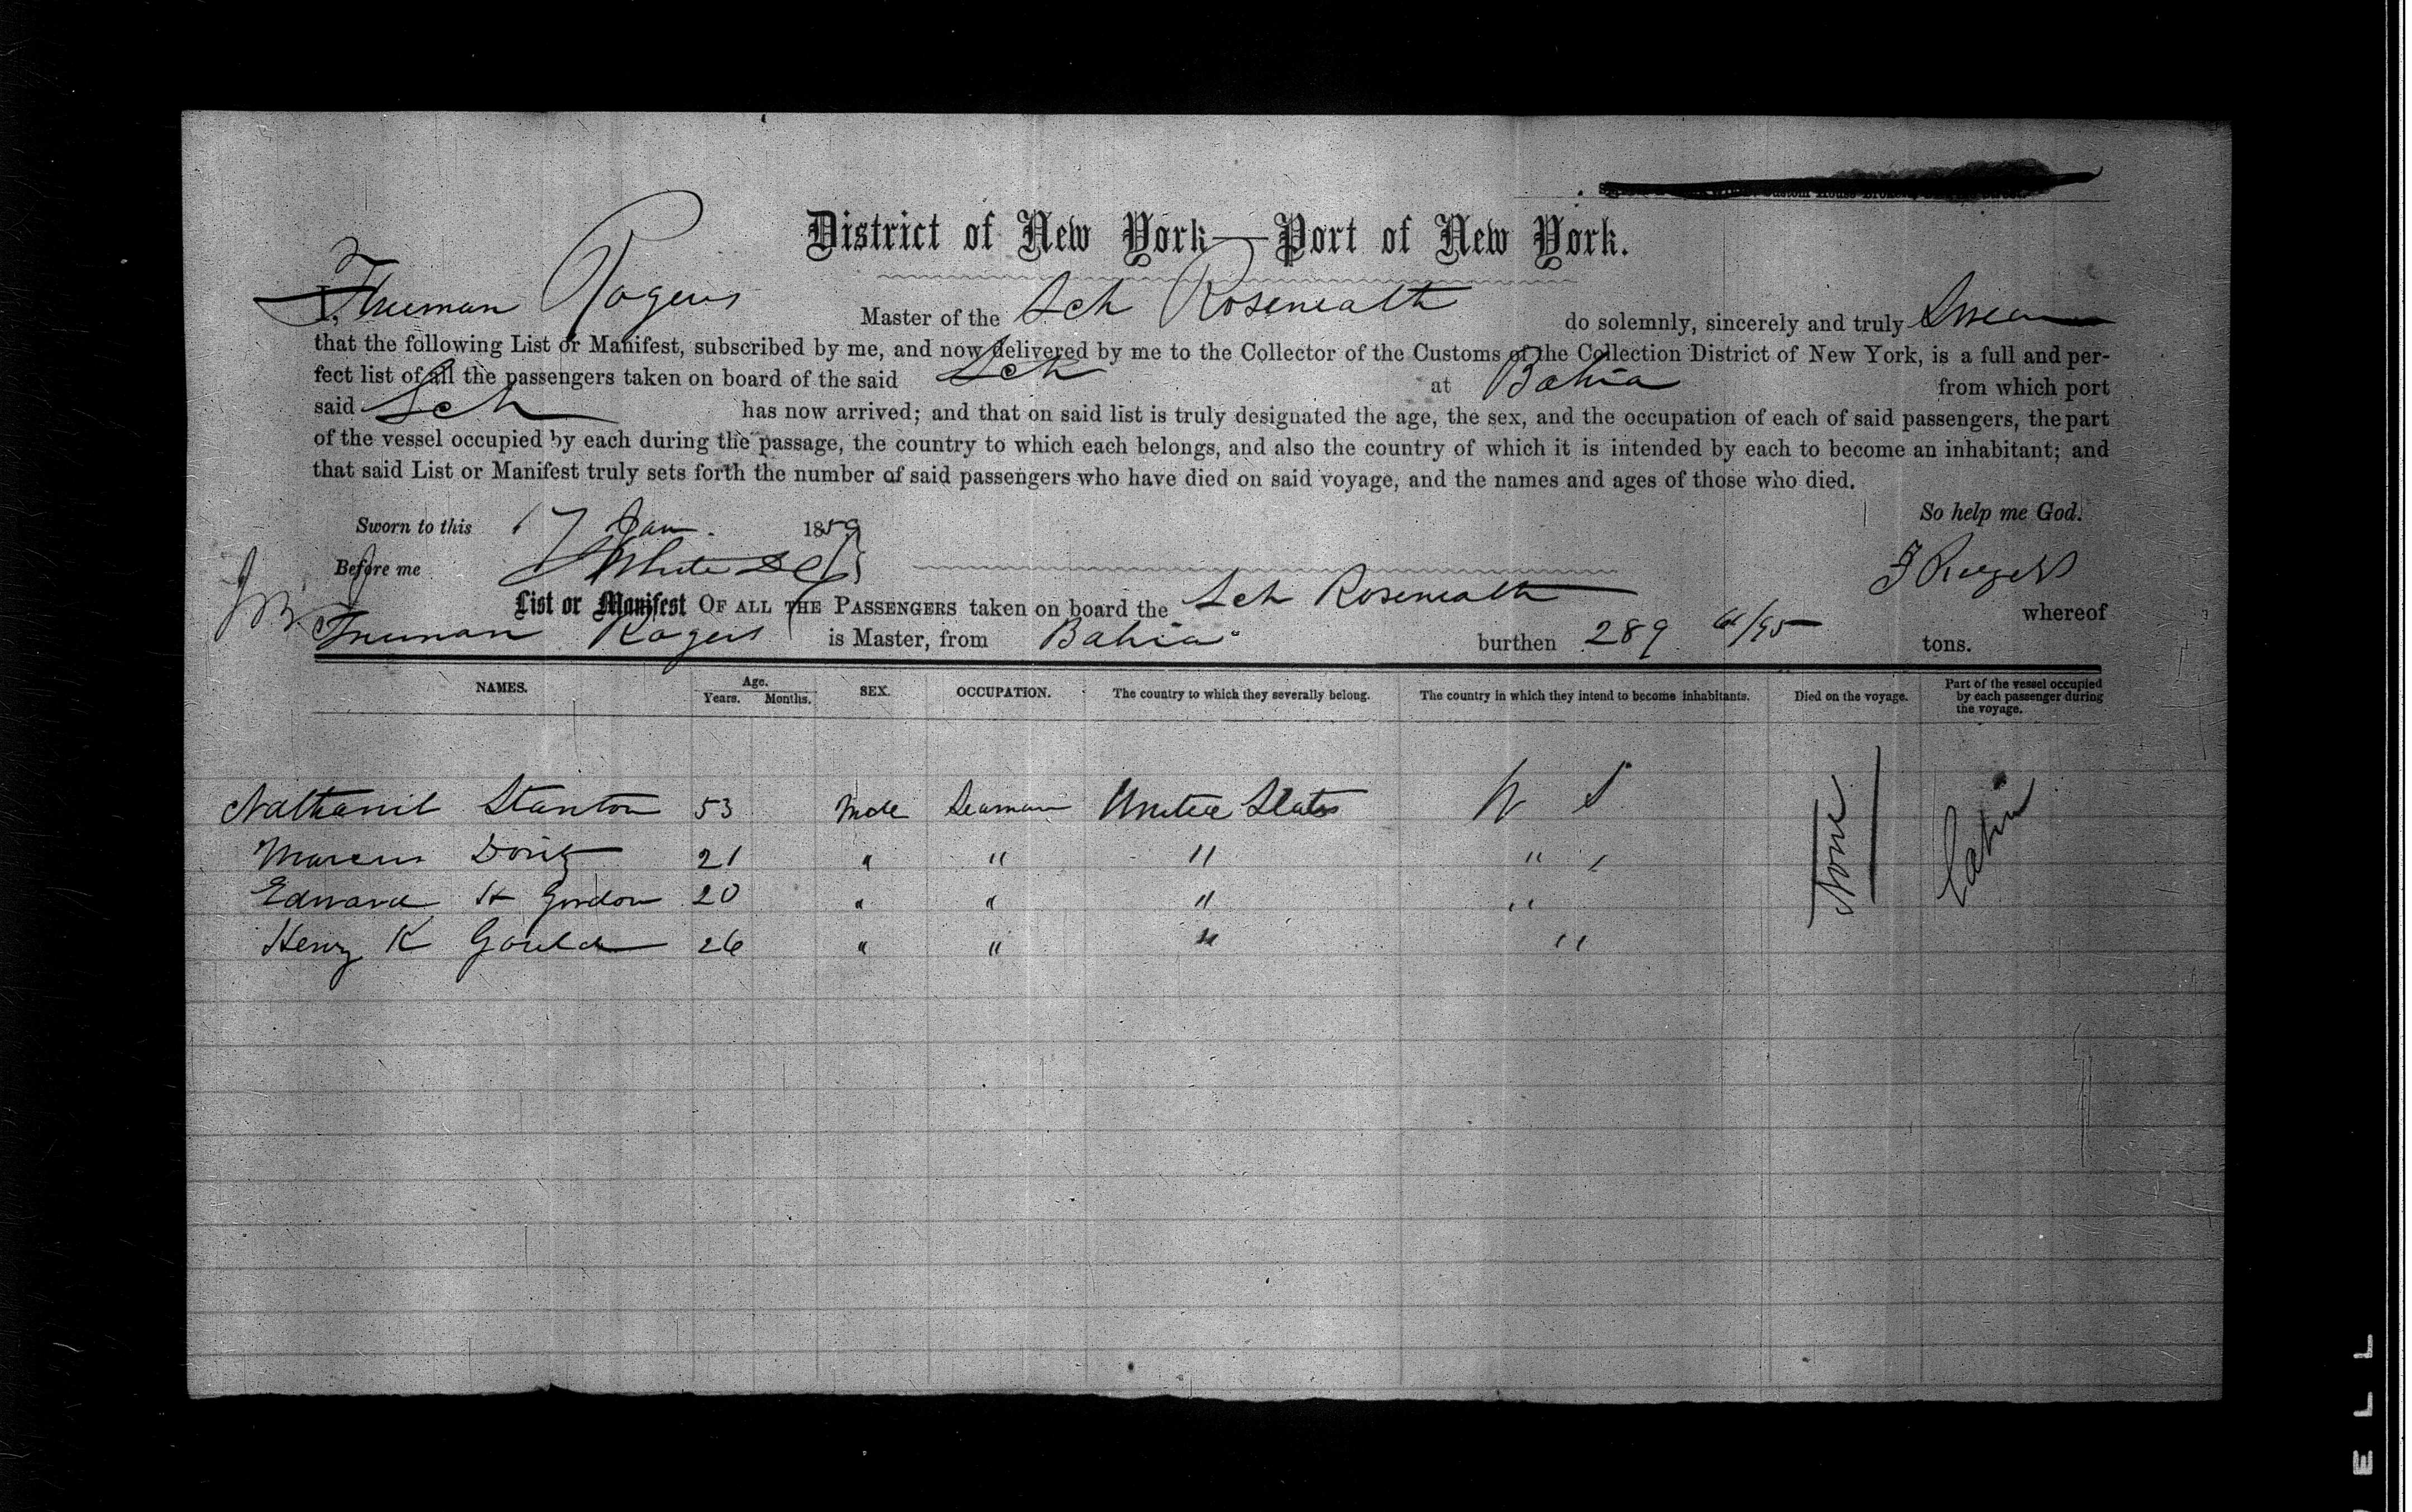 District of New York—Port of New York.
I, Freeman Rogers Master of the Sch Roseneath do solemnly, sincerely and truly Swear
that the following List or Manifest, subscribed by me, and now delivered by me to the Collector of the Customs of the Collection District of New York, is a full and per-
fect list of all the passengers taken on board of the said Sch at Bahia from which port
said Sch has now arrived; and that on said list is truly designated the age, the sex, and the occupation of each of said passengers, the part
of the vessel occupied by each during the passage, the country to which each belongs, and also the country of which it is intended by each to become an inhabitant; and
that said List or Manifest truly sets forth the number of said passengers who have died on said voyage, and the names and ages of those who died.
So help me God.
Sworn to this 17 Jan. 1859
Before me White
List or Manifest OF ALL THE PASSENGERS taken on board the Sch Roseneath whereof
Freeman Rogers is Master, from Bahia burthen 289 /95 tons.
NAMES. Age. Years. Months. SEX. OCCUPATION. The country to which they severally belong. The country in which they intend to become inhabitants. Died on the voyage. Part of the vessel occupied by each passenger during the voyage.
Nathanil Stanton 53 Male Seaman United States U S None Cabin
Marcus 21 " " " "
Edward H Gordon 20 " " " "
Henry K Gould 26 " " " "